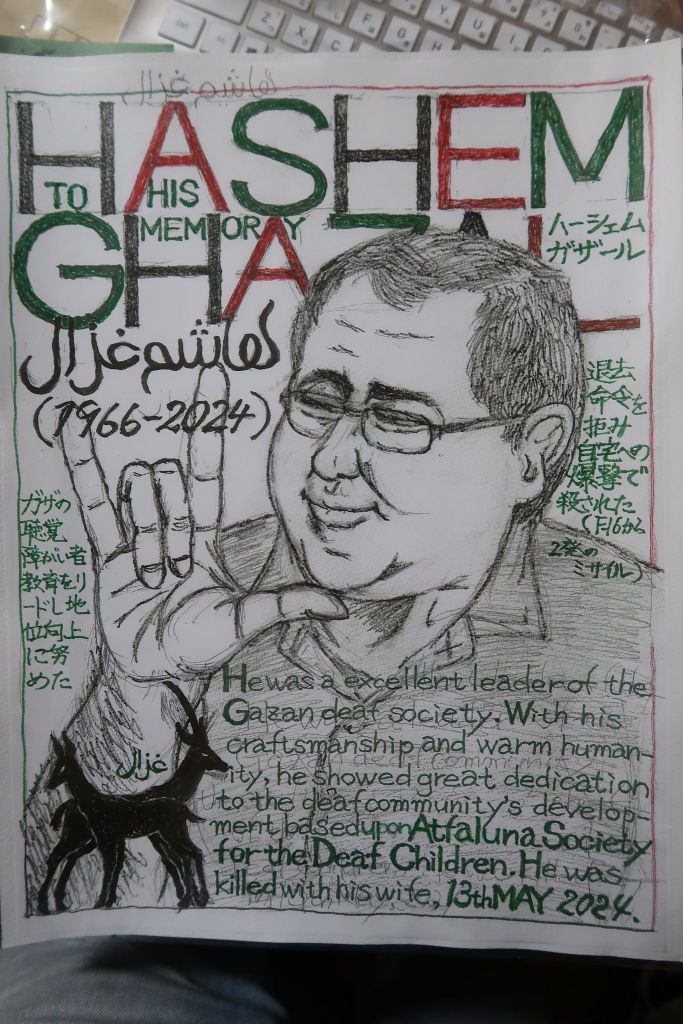 هاشم غزال
HASHEM
TO HIS
MEMORY
GHAZAL
ハーシェム
ガザール
هاشم غزال
(1966-2024)
退去
命令を
拒み
自宅への
爆撃で
殺された
(F16から
2発の
ミサイル)
ガザの
聴覚
障がい者
教育をリ
ードし地
位向上
に努
めた
He was a excellent leader of the
Gazan deaf society. With his
craftsmanship and warm human-
ity, he showed great dedication
to the deaf community's develop-
ment based upon Atfaluna Society
for the Deaf Children. He was
killed with his wife, 13th MAY 2024.
غزال